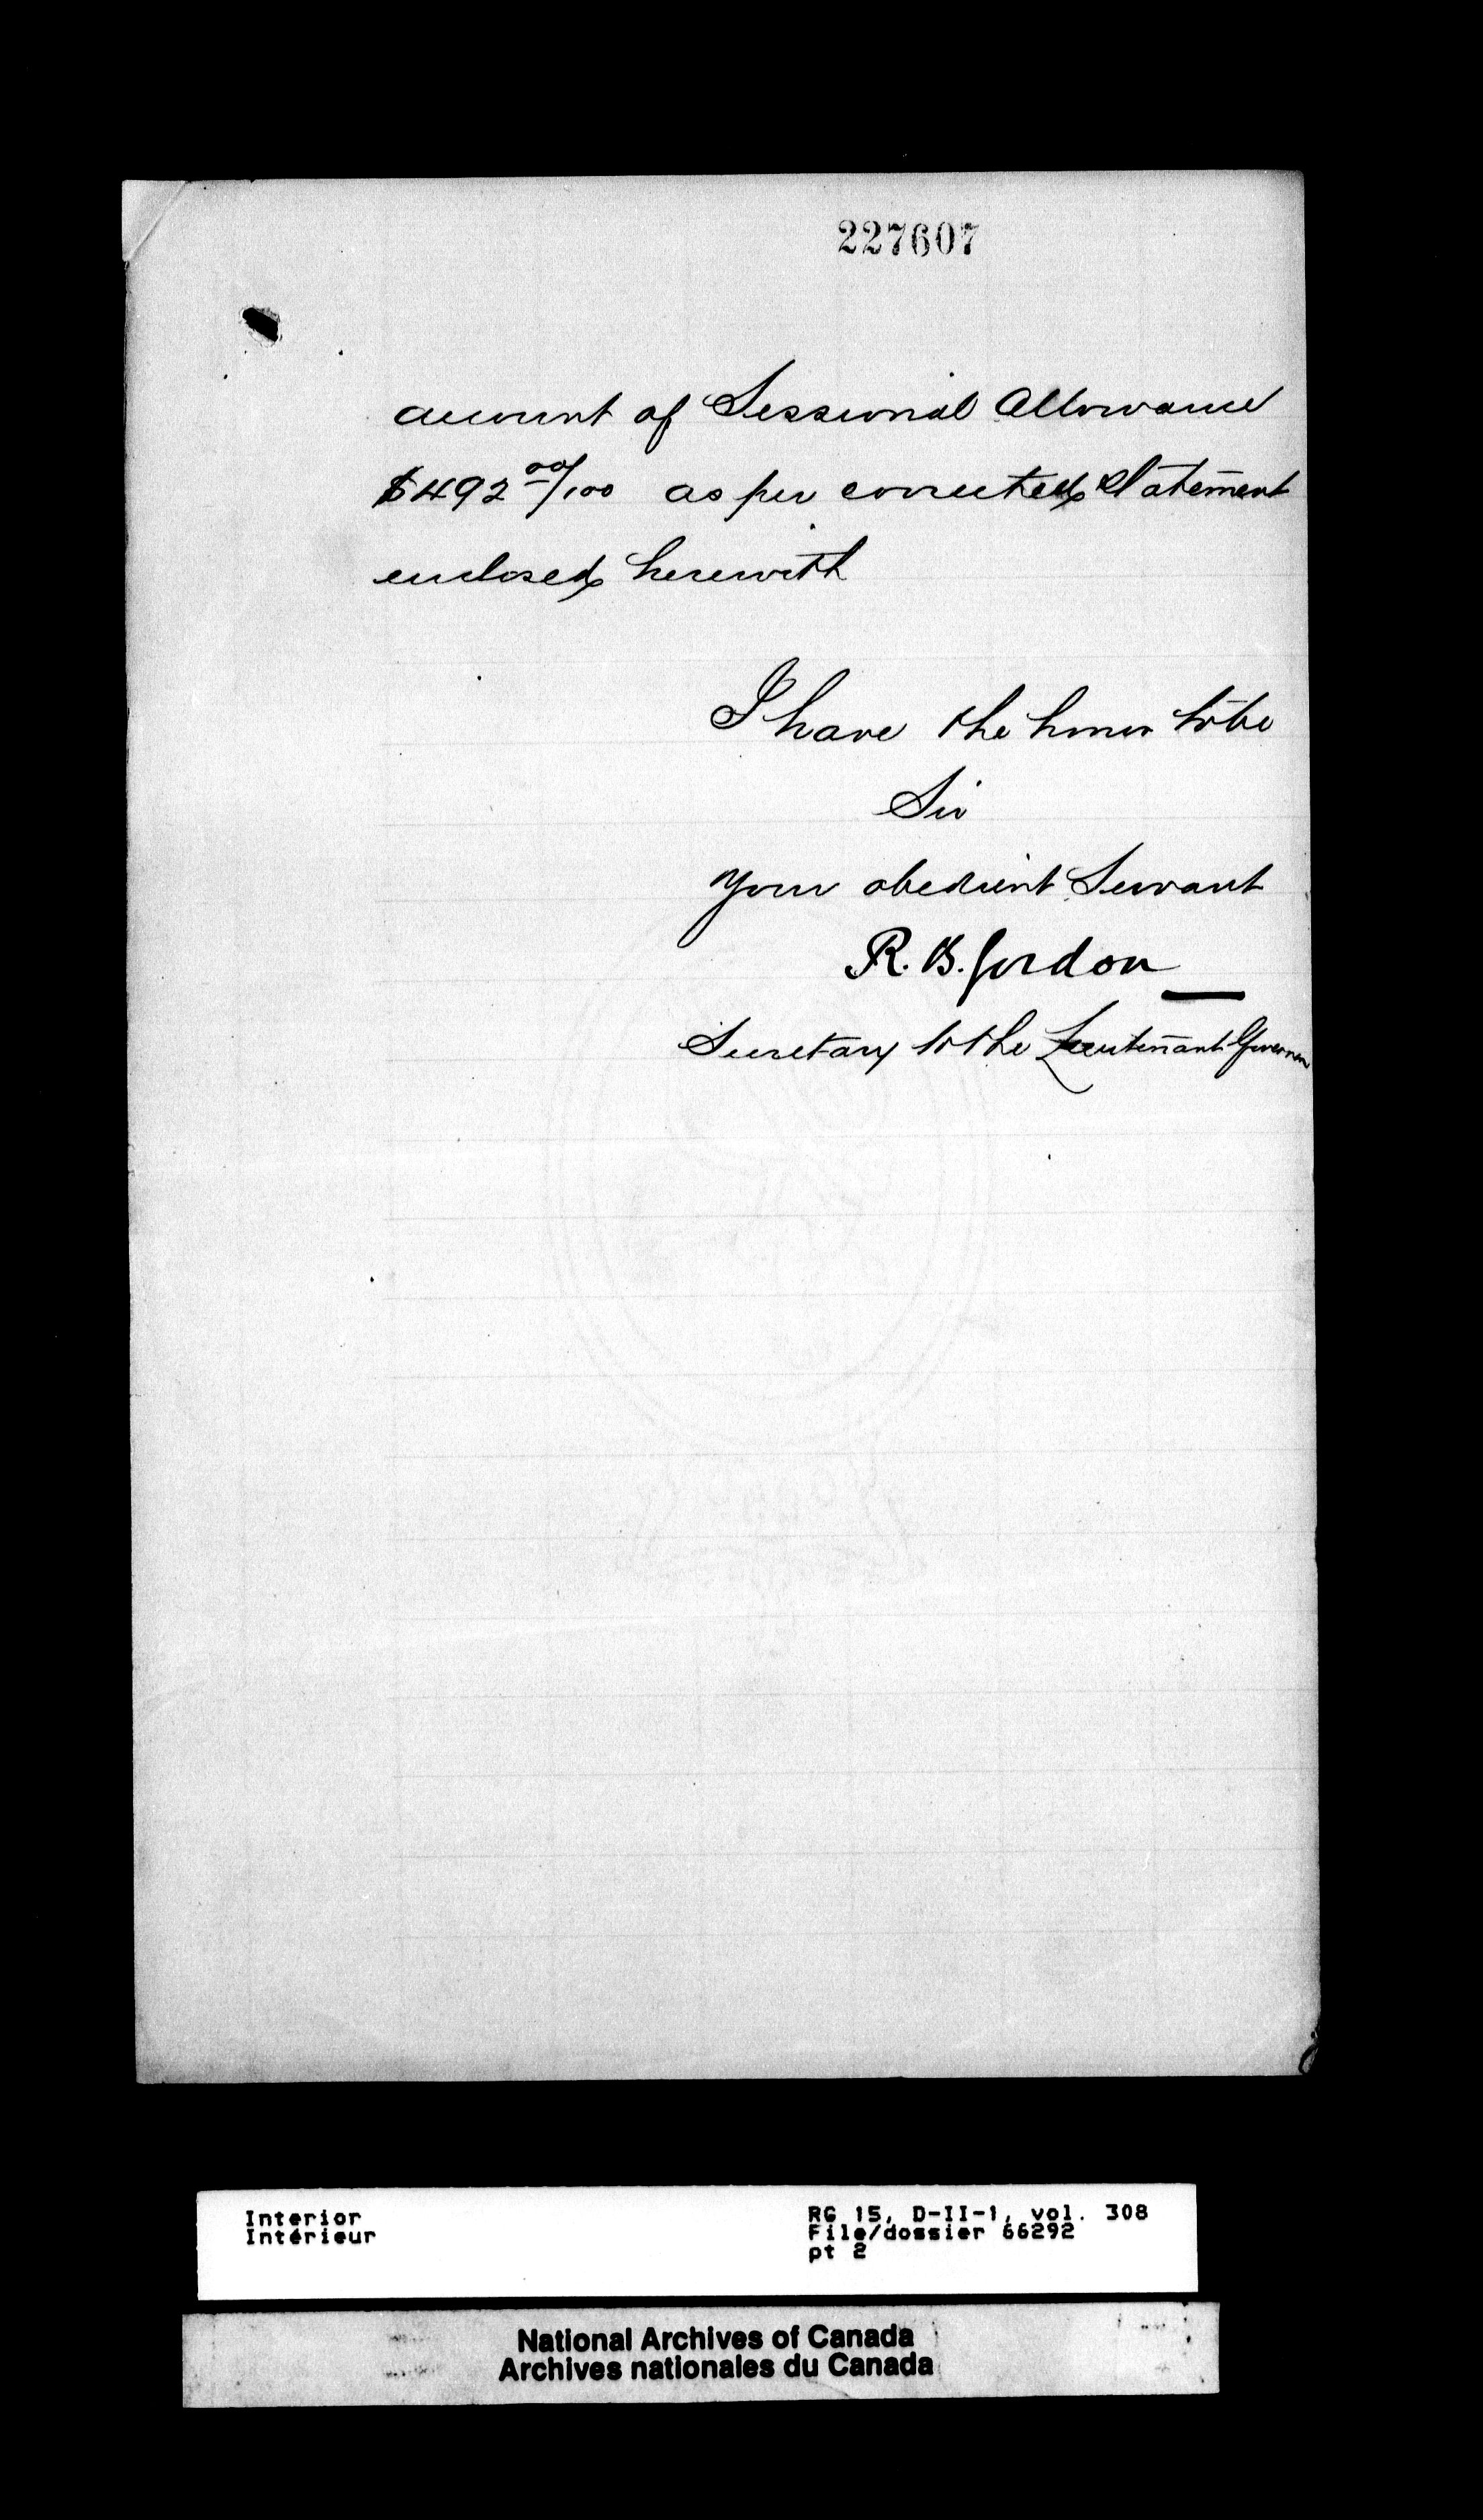 227607
account of Sessional Allowance
$492 00/100 as per corrected Statement
enclosed herewith
I have the honor to be
Sir
Your obedient Servant
R. B. Gordon
Secretary to the Lieutenant Governor
Interior
Intérieur
RG 15, D-II-1, vol. 308
File/dossier 66292
pt 2
National Archives of Canada
Archives nationales du Canada